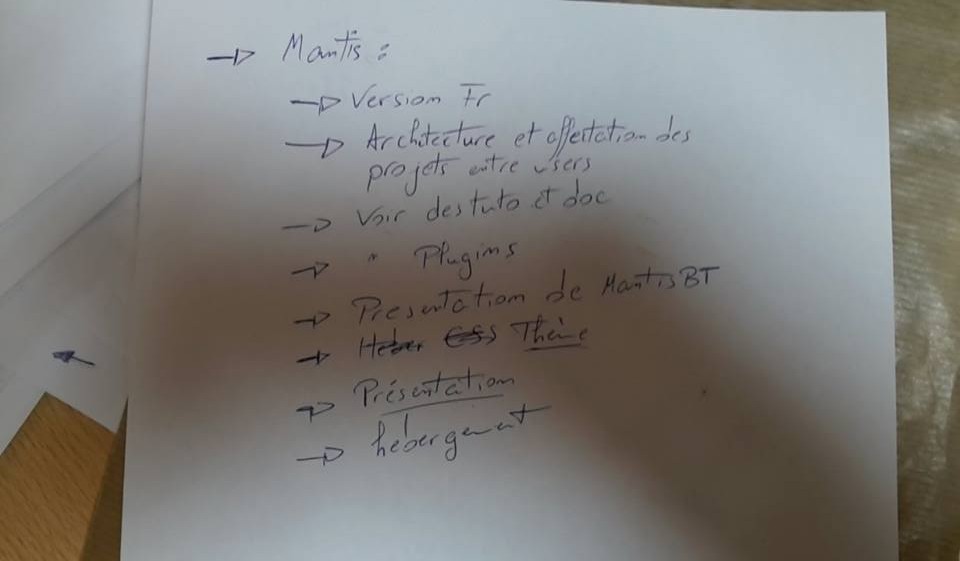 → Mantis :
→ Version Fr
→ Architecture et affectation des
projets entre users
→ Voir des tuto et doc
→ " Plugins
→ Presentation de MantisBT
→ Thème
→ Présentation
→ hébergement